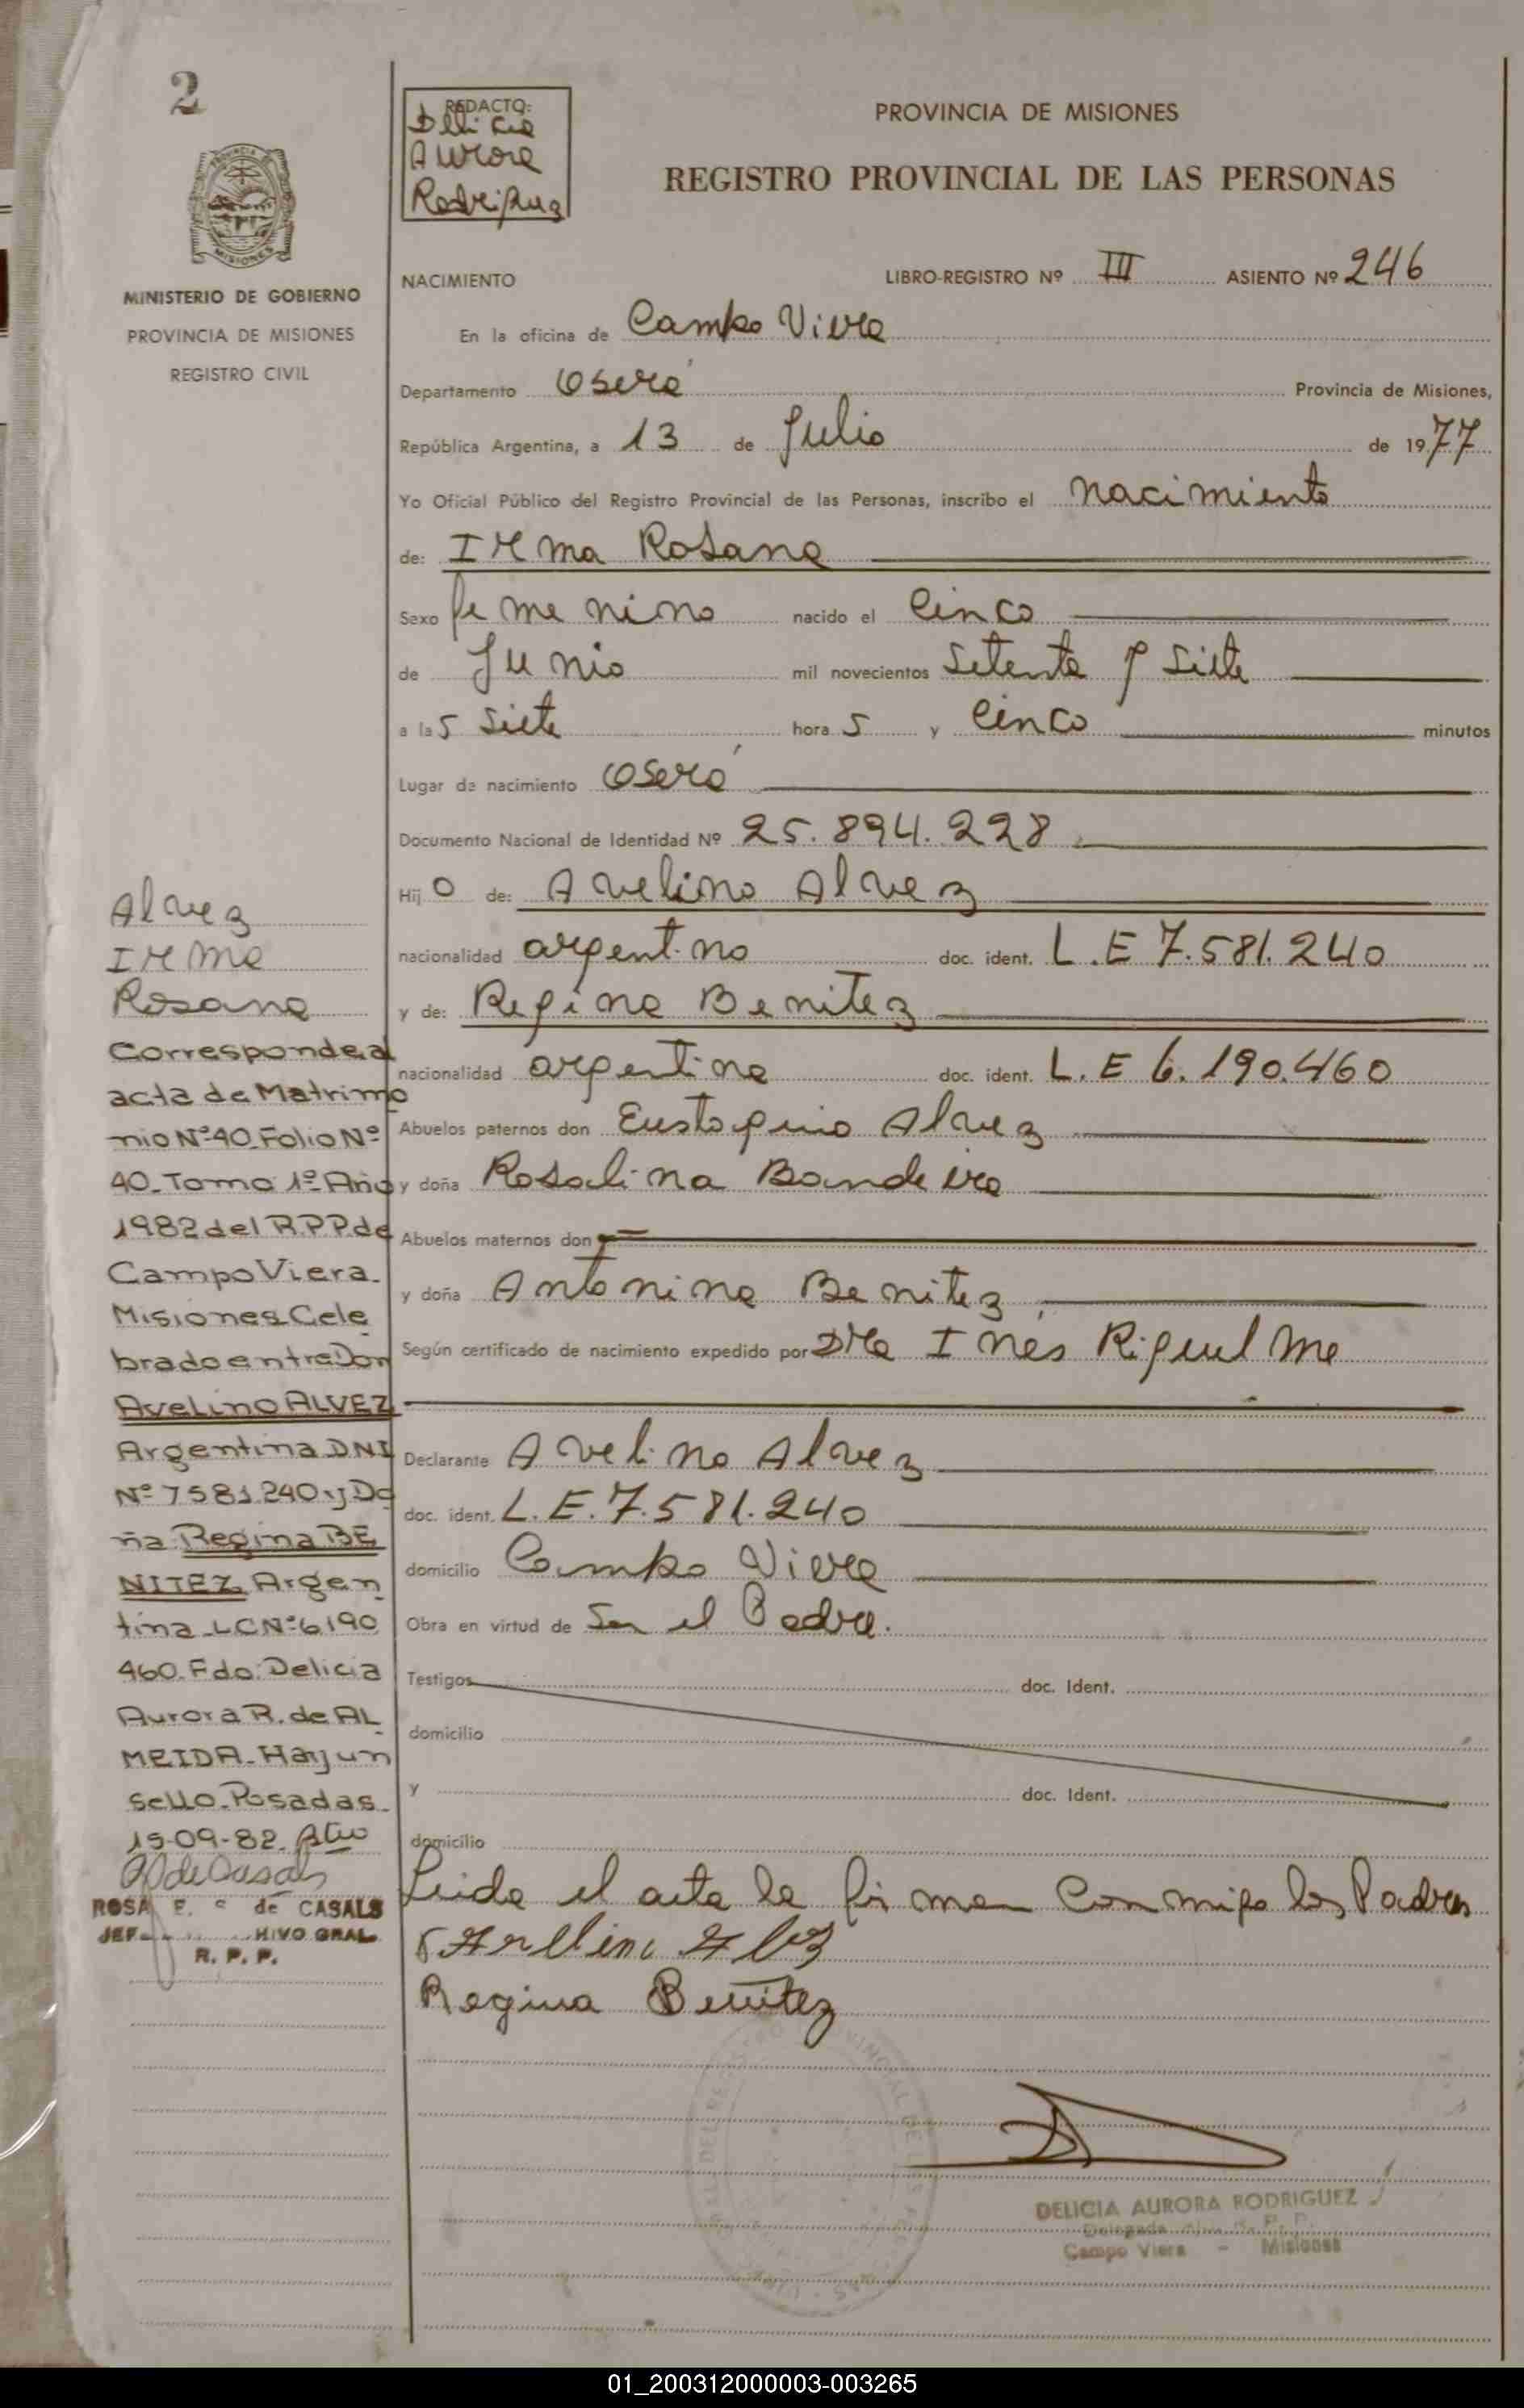 2
REDACTO:
Delicia
Aurora
Rodriguez
PROVINCIA DE MISIONES
REGISTRO PROVINCIAL DE LAS PERSONAS
MINISTERIO DE GOBIERNO
PROVINCIA DE MISIONES
REGISTRO CIVIL
NACIMIENTO LIBRO-REGISTRO Nº III ASIENTO Nº 246
En la oficina de Campo Viera
Departamento Oberá Provincia de Misiones,
República Argentina, a 13 de Julio de 1977
Yo Oficial Público del Registro Provincial de las Personas, inscribo el nacimiento
de: Irma Rosana
Sexo femenino nacido el Cinco
de Junio mil novecientos Setenta y Siete
a las Siete horas y Cinco minutos
Lugar de nacimiento Oberá
Documento Nacional de Identidad Nº 25.894.228
Hijo de: Avelino Alvez
nacionalidad argentino doc. ident. L.E 7.581.240
y de: Regina Benitez
nacionalidad argentina doc. ident. L.E 6.190.460
Abuelos paternos don Eustaquio Alvez
y doña Rosalina Bandeira
Abuelos maternos don
y doña Antonina Benitez
Según certificado de nacimiento expedido por Dra Inés Riquelme
Declarante Avelino Alvez
doc. ident. L.E. 7.581.240
domicilio Campo Viera
Obra en virtud de Ser el Padre.
Testigos doc. Ident.
domicilio
y doc. Ident.
domicilio
Leida el acta la firman Conmigo los Padres
Regina Benitez
DELICIA AURORA RODRIGUEZ
Delegada R. P. P.
Campo Viera - Misiones
Alvez
Irma
Rosana
Corresponde al
acta de Matrimo
nio Nº 40 Folio Nº
40 Tomo 1º Año
1982 del R.P.P. de
Campo Viera
Misiones Cele
brado entre Don
Avelino ALVEZ
Argentina DNI
Nº 7581.240 y Do
ña Regina BE
NITEZ Argen
tina LC Nº 6190
460. Fdo: Delicia
Aurora R. de AL
MEIDA - Hay un
Sello. Posadas
15-09-82.
ROSA E. de CASALS
R. P. P.
01_200312000003-003265